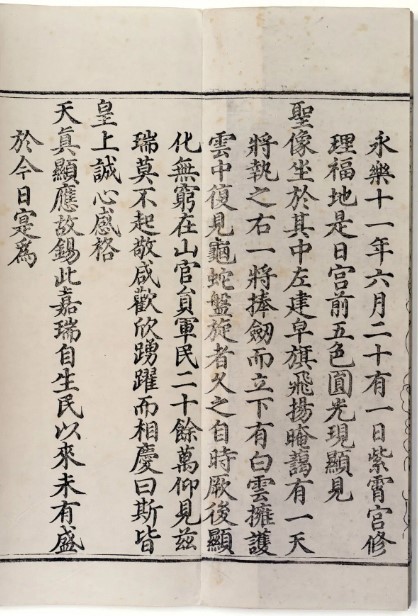 永樂十一年六月二十有一日紫霄宮修
理福地是日宮前五色圓光現顯見
聖像坐於其中左建皁旗飛揚晻藹有一天
將執之右一將捧劒而立下有白雲擁護
雲中復見龜蛇盤旋者久之自時厥後顯
化無窮在山官貟軍民二十餘萬仰見茲
瑞莫不起敬咸歡欣踴躍而相慶曰斯皆
皇上誠心感格
天真顯應故錫此嘉瑞自生民以來未有盛
於今日寔為